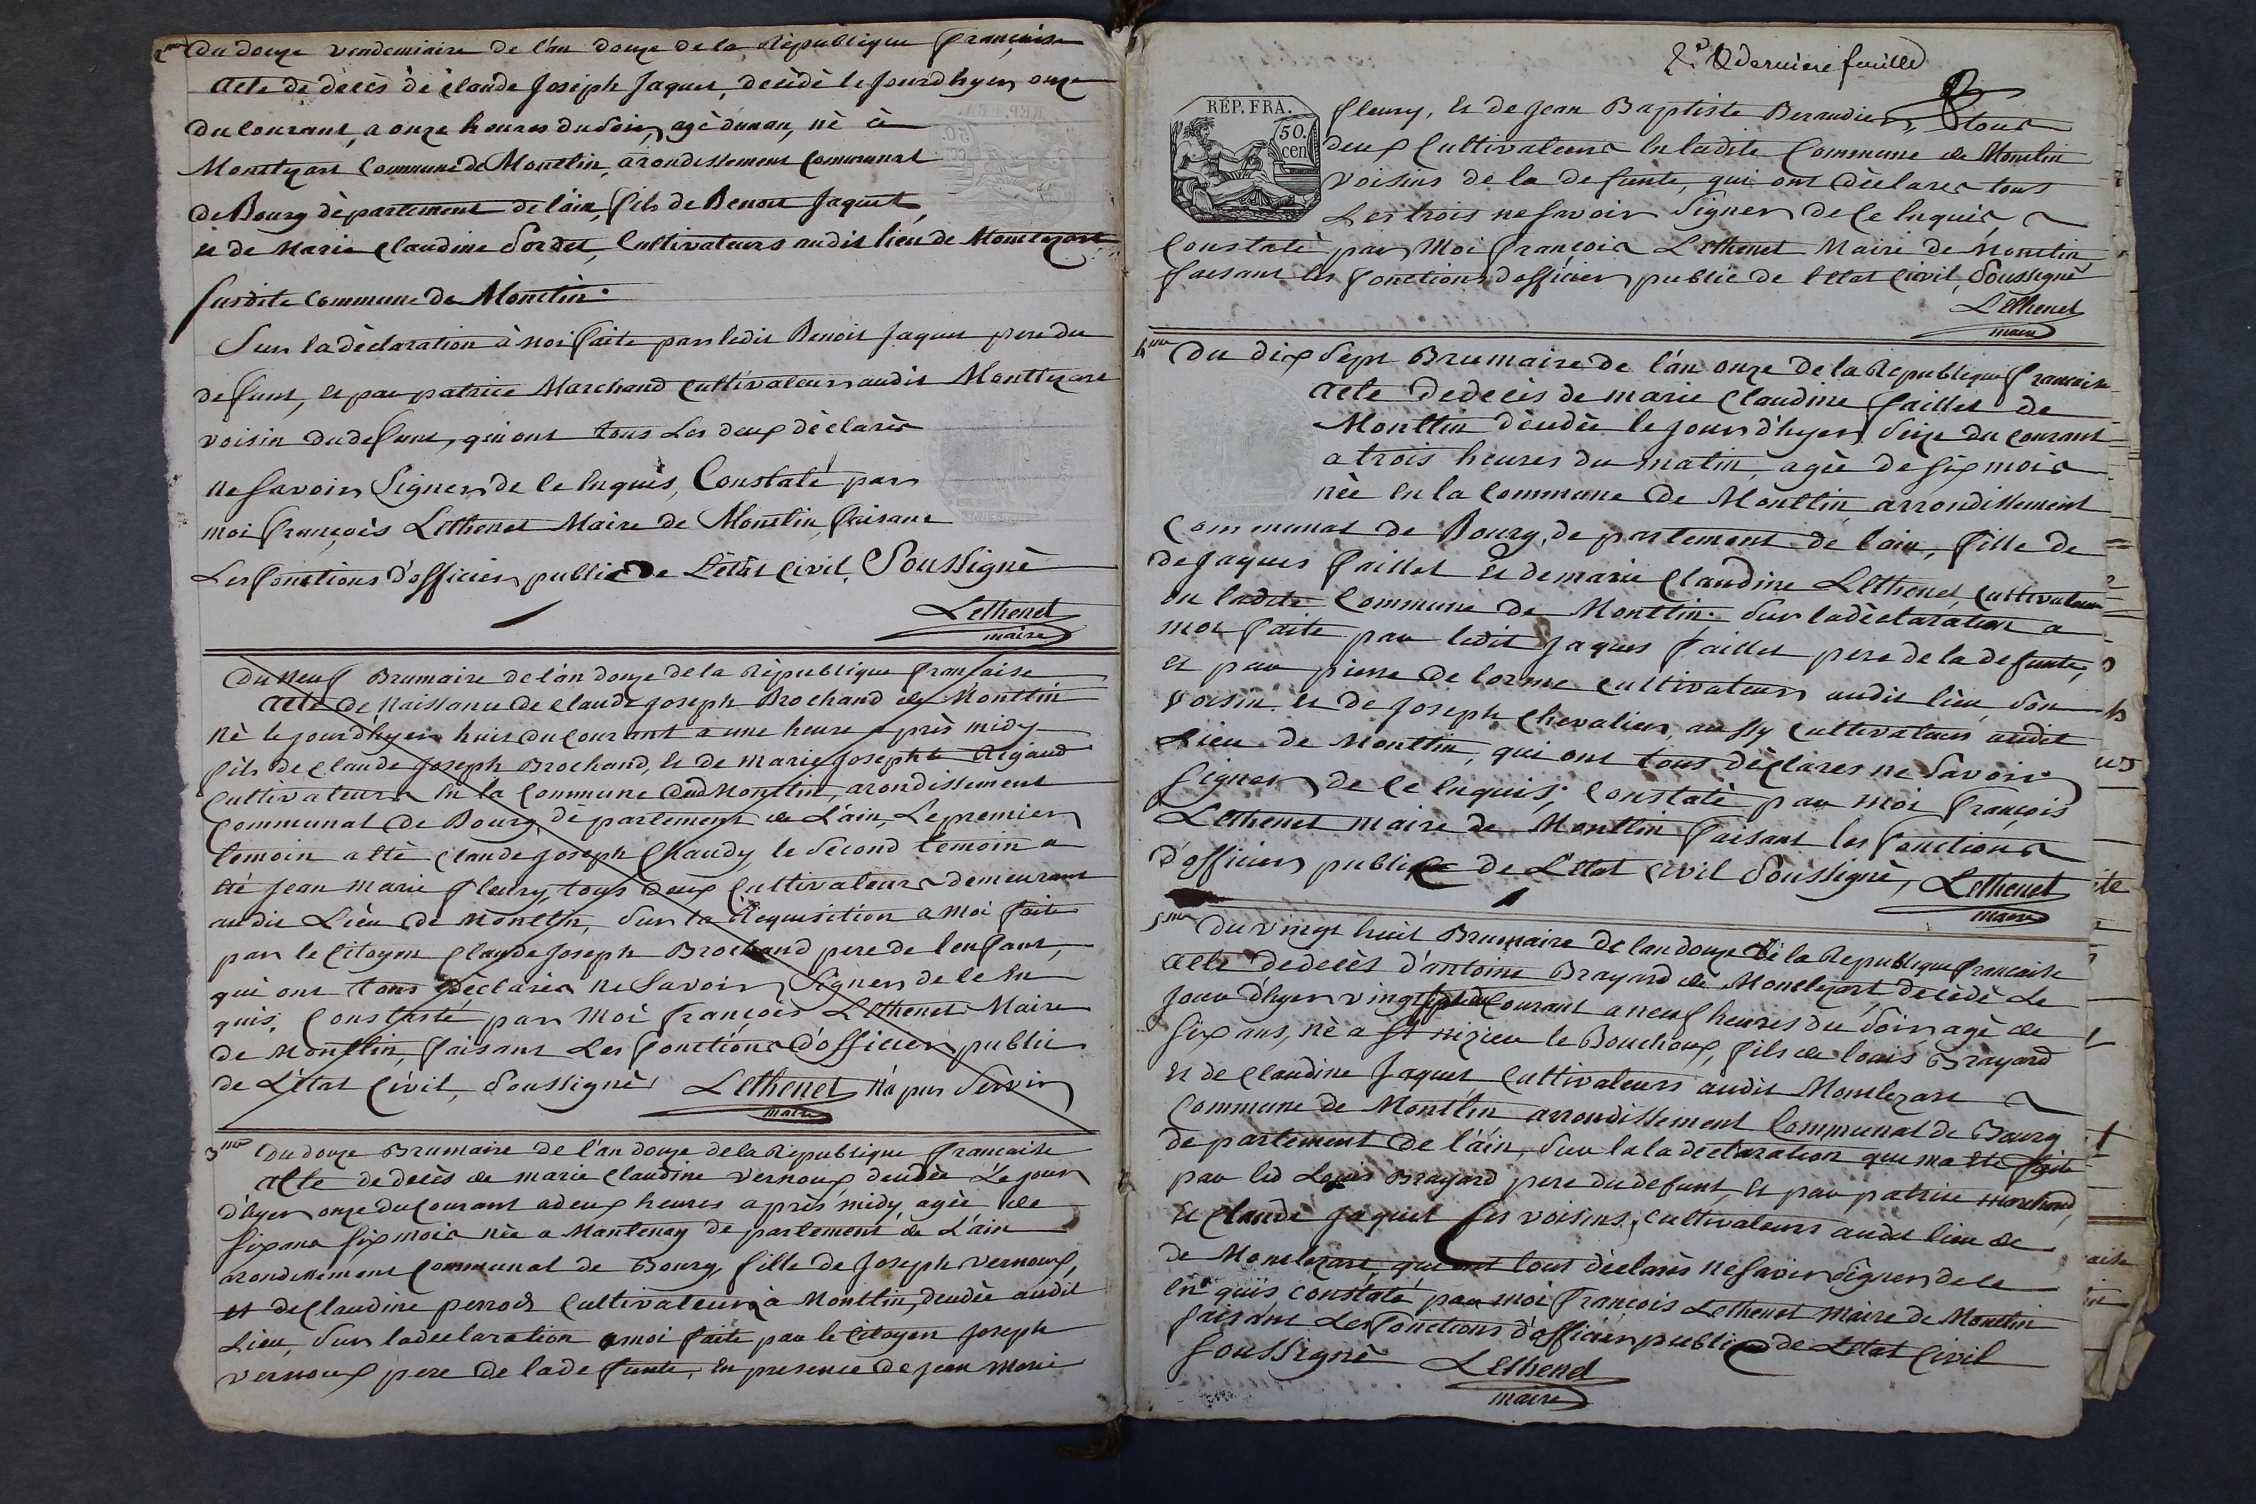 2me Du douze vendemiaire de l'an douze de la Rèpublique françaíse
Acte de décès dè claude Joseph Jaquet, decèdè le Jourdhyer onze
du courant, a onze heures du soir, agè dunan, nè à
Montlezart Commune de Montlin, arondissement Communal
de Bourg dèpartement de l'ain, fils de Benoit Jaquet
et de Marie Claudine Sordet, Cultivateurs audit liéu de Montlezart
susdite Commune de Montlin.
Sur la dèclaration à moi faite par ledit Benoit Jaquet pere du
defunt, et par patrice Marchand cultivateur audit Montlezart
voisin du defunt, qui ont tous les deux dèclarès
ne savoir signer de ce Enquis, Constaté par
moi françois Lethenet Maire de Montlin, faisant
Les fonctions d'officier public de L'ètat civil, Soussignè
Lethenet
maire
Du Neuf Brumaire de l'an douze de la Rèpublique française
Acte de Naissance de Claude joseph Brochand de Montlin
Nè le jourd'hyer huit du courant a une heure après midy
fils de Claude Joseph Brochand, et de marie Josephte Rigaud
Cultivateurs En la Commune de Montlin, arondissement
Communal de Bourg, dèpartement de L'ain, Le premier
temoin a ètè Claude Joseph Chaudy, le Second temoin a
èté Jean marie fleury, tous deux Cultivateurs demeurant
audit Lièu de Montlin, Sur la Rèquisition a moi faite
par le Citoyen Claude Joseph Brochand pere de l'enfant,
qui ont tous Dèclarès ne Savoir Signer de ce En
quis. Constaté par Moi françois Lethenet Maire
de Montlin, faisant Les fonctions d'officier public
de L'état Civil, Soussignè Lethenet N'a pas Servir
maire
3me Du douze Brumaire de l'an douze de la Rèpublique francaise
Acte de decès de marie Claudine Vernoux decèdèe Lé jour
d'hyer onze du Courant a deux heures après midy, agèe de
six ans six mois nèe a Mantenay departement de L'ain
arondissement Communal de Bourg, fille de Joseph Vernoux,
et de Claudine perrod Cultivateurs à Montlin, decèdèe audit
Lieu, Sur la declaration a moi faite par le Citoyen Joseph
Vernoux pere de la defunte, En presence de Jean Marie
2e & derniere feuille
RÉP. FRA.
50.
cen
fleury, et de Jean Baptiste Beraudier, tous
deux Cultivateurs En ladite Commune de Montlin
Voisins de la defunte, qui ont dèclarés tous
Les trois ne Savoir Signer de Ce Enquis
Constatè par Moi françois Lethenet Maire de Montlin,
faisant les fonctions d'officier public de l'Etat Civil, Soussignè
Lethenet
maire
4me Du dix Sept Brumaire de l'an onze de la Republique francaise
Acte de decès de marie Claudine faillet de
Montlin dècèdèe le jour d'hyer Seize du Courant
a trois heures du matin, agèe de six mois
nèe En la Commune de Montlin arrondissement
Communal de Bourg, departement de l'ain, fille de
de Jaques faillet et de marie Claudine Lethenet cultivateurs
en ladite Commune de Montlin. Sur la dèclaration a
moi faite par ledit Jaques faillet pere de la defunte,
et par pierre de lorme cultivateur audit lieu, Son
Voisin. et de Joseph Chevalier, aussy cultivateur audit
Lieu de Montlin, qui ont tous dèclares ne Savoir
Signer de Ce Enquis; Constatè par moi françois
Lethenet maire de Montlin faisant les fonctions
d'officier public de L'Etat Civil Soussignè, Lethenet
maire
5me Du vingt huit Brumaire de l'an douze de la Republique francaise
Acte de decès d'antoine Brayard de Montlezart, decèdè Le
Jour d'hyer vingt sept du Courant a neuf heures du Soir, agè de
Six ans, nè a St nizieu le Bouchoux, fils de louis Brayard
et de Claudine Jaquet Cultivateurs audit Montlezart
Commune de Montlin arrondissement Communal de Bourg
departement de l'ain, Sur la la declaration que ma Etè faite
par led Louis Brayard pere du defunt, et par patrice marchand
et Claude Jaquet Ses voisins, Cultivateurs audit lieu de
de Montlezart, qui ont tous dèclarès ne Savoir Signer de ce
en quis constaté par moi françois Lethenet maire de Montlin
faisant Les fonctions d'officier public de L'etat Civil
Soussignè Lethenet
maire